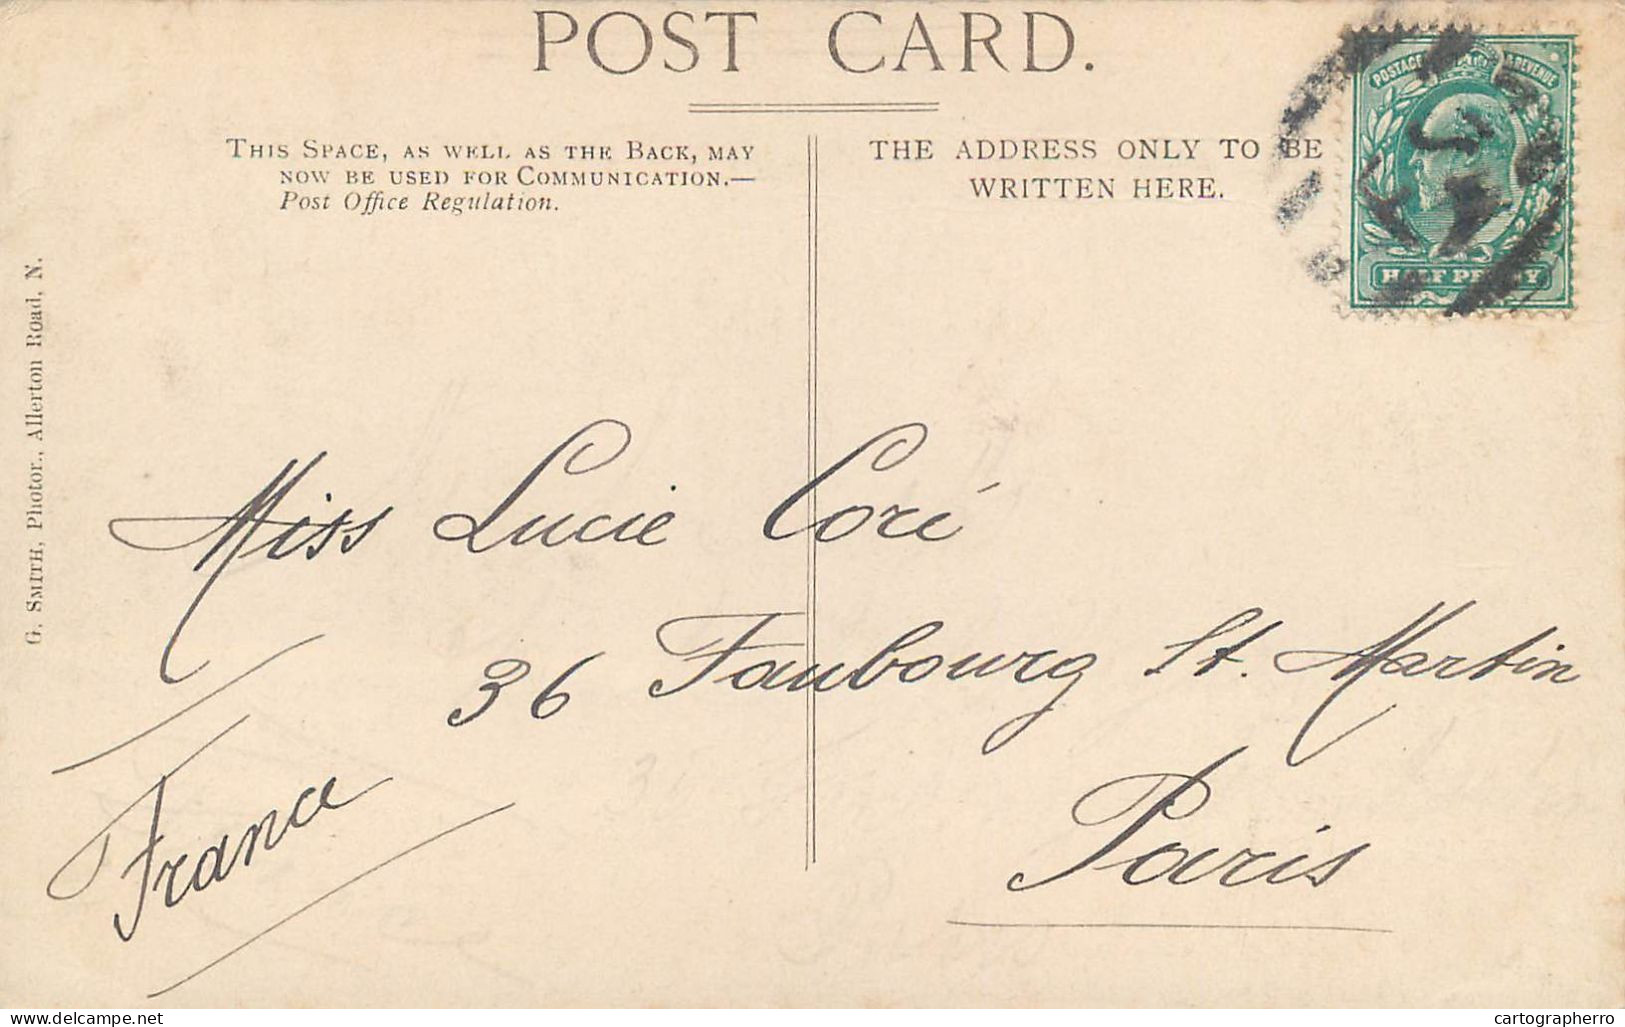 POST CARD.
THIS SPACE, AS WELL AS THE BACK, MAY
NOW BE USED FOR COMMUNICATION.—
Post Office Regulation.
THE ADDRESS ONLY TO BE
WRITTEN HERE.
POSTAGE REVENUE
HALF PENNY
G. SMITH, Photor., Allerton Road, N.
Miss Lucie Coré
36 Faubourg St. Martin
Paris
France
cartographe.delcampe.net